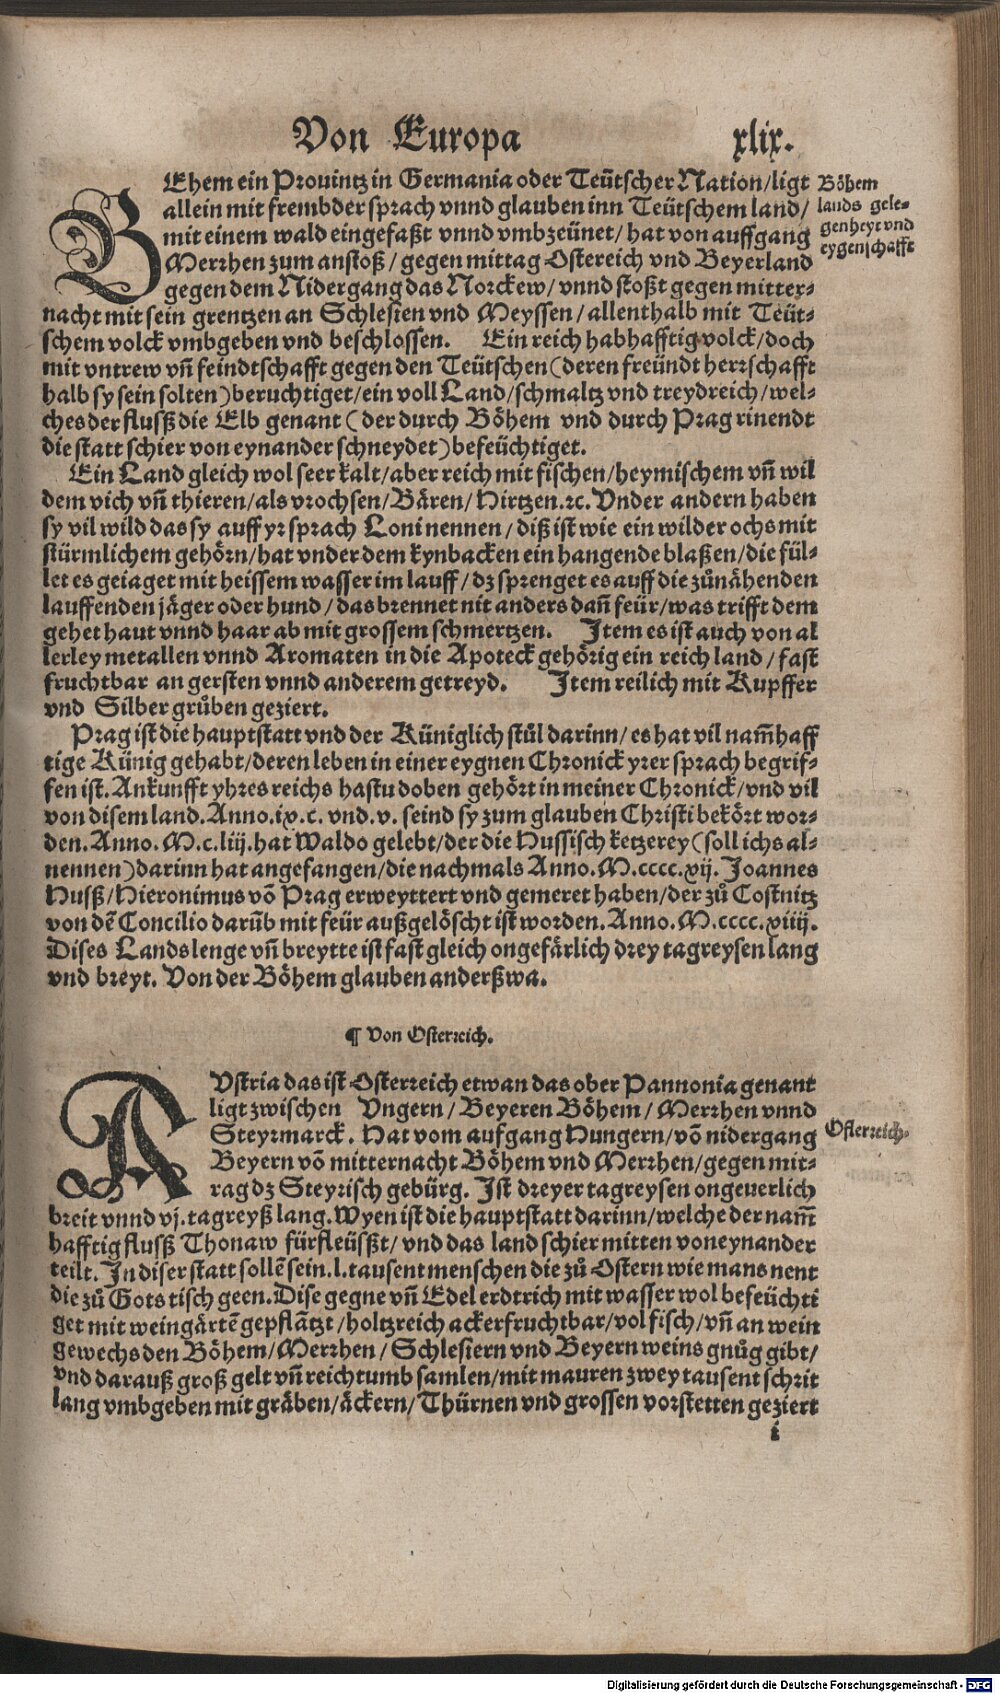 Von Europa xlix.
BEhem ein Prouintz in Germania oder Teütscher Nation/ligt
allein mit frembder sprach vnnd glauben inn Teütschem land/
mit einem wald eingefaßt vnnd vmbzeünet/ hat von auffgang
Merrhen zum anstoß/ gegen mittag Ostereich vnd Beyerland
gegen dem Nidergang das Norckew/ vnnd stoßt gegen mitter-
nacht mit sein grentzen an Schlesien vnd Meyssen/ allenthalb mit Teüt-
schem volck vmbgeben vnd beschlossen. Ein reich habhafftig volck/doch
mit vntrew vñ feindtschafft gegen den Teütschen (deren freündt herrschafft
halb sy sein solten) beruchtiget/ein voll Land/schmaltz vnd treydreich/wel-
ches der flusß die Elb genant (der durch Böhem vnd durch Prag rinendt
die statt schier von eynander schneydet) befeüchtiget.
Ein Land gleich wol seer kalt/aber reich mit fischen/heymischem vñ wil
dem vich vñ thieren/als vrochsen/Bären/Hirtzen.ꝛc. Vnder andern haben
sy vil wild das sy auff yr sprach Loni nennen/ diß ist wie ein wilder ochs mit
stürmlichem gehörn/hat vnder dem kynbacken ein hangende blaßen/die fül-
let es geiaget mit heissem wasser im lauff/ dz sprenget es auff die zůnähenden
lauffenden jäger oder hund/ das brennet nit anders dañ feür/was trifft dem
gehet haut vnnd haar ab mit grossem schmertzen. Item es ist auch von al
lerley metallen vnnd Aromaten in die Apoteck gehörig ein reich land/ fast
fruchtbar an gersten vnnd anderem getreyd. Item reilich mit Kupffer
vnd Silber grůben geziert.
Prag ist die hauptstatt vnd der Küniglich stůl darinn/ es hat vil nam̃haff
tige Künig gehabt/deren leben in einer eygnen Chronick yrer sprach begrif-
fen ist. Ankunfft yhres reichs hastu doben gehört in meiner Chronick/vnd vil
von disem land. Anno.ix.c. vnd.v. seind sy zum glauben Christi bekört wor-
den. Anno. M.c.liij. hat Waldo gelebt/der die Hussisch ketzerey (soll ichs al-
nennen) darinn hat angefangen/die nachmals Anno. M.cccc.xij. Joannes
Husß/Hieronimus võ Prag erweyttert vnd gemeret haben/der zů Costnitz
von dẽ Concilio darũb mit feür außgelöscht ist worden. Anno. M.cccc.xiiij.
Dises Lands lenge vñ breytte ist fast gleich ongefärlich drey tagreysen lang
vnd breyt. Von der Böhem glauben anderßwa.
Böhem
lands gele-
genheyt vnd
eygenschafft
¶ Von Osterreich.
AVstria das ist Osterreich etwan das ober Pannonia genant
ligt zwischen Vngern/ Beyeren Böhem/ Merrhen vnnd
Steyrmarck. Hat vom aufgang Hungern/võ nidergang
Beyern võ mitternacht Böhem vnd Merrhen/gegen mit-
rag dz Steyrisch gebürg. Ist dreyer tagreysen ongeuerlich
breit vnnd vj. tagreyß lang. Wyen ist die hauptstatt darinn/welche der nam̃
hafftig flusß Thonaw fürfleüsßt/ vnd das land schier mitten voneynander
teilt. In diser statt sollẽ sein.l.tausent menschen die zů Ostern wie mans nent
die zů Gots tisch geen. Dise gegne vñ Edel erdtrich mit wasser wol befeüchti
get mit weingärtẽ gepflãtzt/holtzreich ackerfruchtbar/vol fisch/vñ an wein
gewechs den Böhem/Merrhen/ Schlesiern vnd Beyern weins gnůg gibt/
vnd darauß groß gelt vñ reichtumb samlen/mit mauren zwey tausent schrit
lang vmbgeben mit gräben/äckern/Thürnen vnd grossen vorstetten geziert
Osterreich.
i
Digitalisierung gefördert durch die Deutsche Forschungsgemeinschaft - DFG